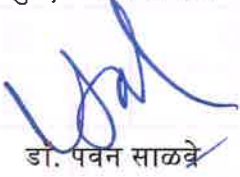 डॉ. पवन साळवे